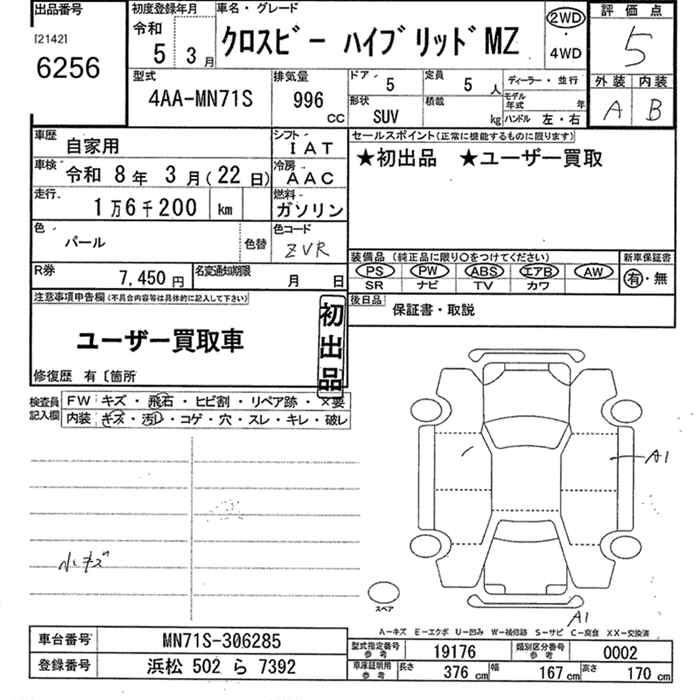 出品番号
[2142]
6256
初度登録年月
令和
5 3月
車名・グレード
クロスビー ハイブリッドMZ
2WD
・
4WD
評価点
5
外装 内装
A B
型式
4AA-MN71S
排気量
996
CC
ドア
5
定員
5 人
形状
SUV
積載
kg
ディーラー・並行
モデル年式 年
ハンドル 左・右
車歴
自家用
シフト
IAT
車検
令和 8年 3月(22日)
冷房
AAC
走行
1万6千200 km
燃料
ガソリン
色
パール
色替
色コード
ZVR
R券
7,450円
名変通知期限
月 日
セールスポイント(正常に機能するものに限ります)
★初出品 ★ユーザー買取
装備品 (純正品に限り○をつけてください)
PS PW ABS エアB AW
SR ナビ TV カワ
新車保証書
有・無
後日品
保証書・取説
注意事項申告欄(不具合内容等は具体的に記入して下さい)
ユーザー買取車
初出品
修復歴 有〔箇所
検査員記入欄
FW キズ・飛石・ヒビ割・リペア跡・×要
内装 キズ・汚レ・コゲ・穴・スレ・キレ・破レ
小キズ
A1
スペア
A1
A-キズ E-エクボ U-凹み W-補修跡 S-サビ C-腐食 XX-交換済
車台番号
MN71S-306285
登録番号
浜松 502 ら 7392
型式指定番号
参考
19176
類別区分番号
参考
0002
車庫証明用
参考
長さ 376 cm 幅 167 cm 高さ 170 cm